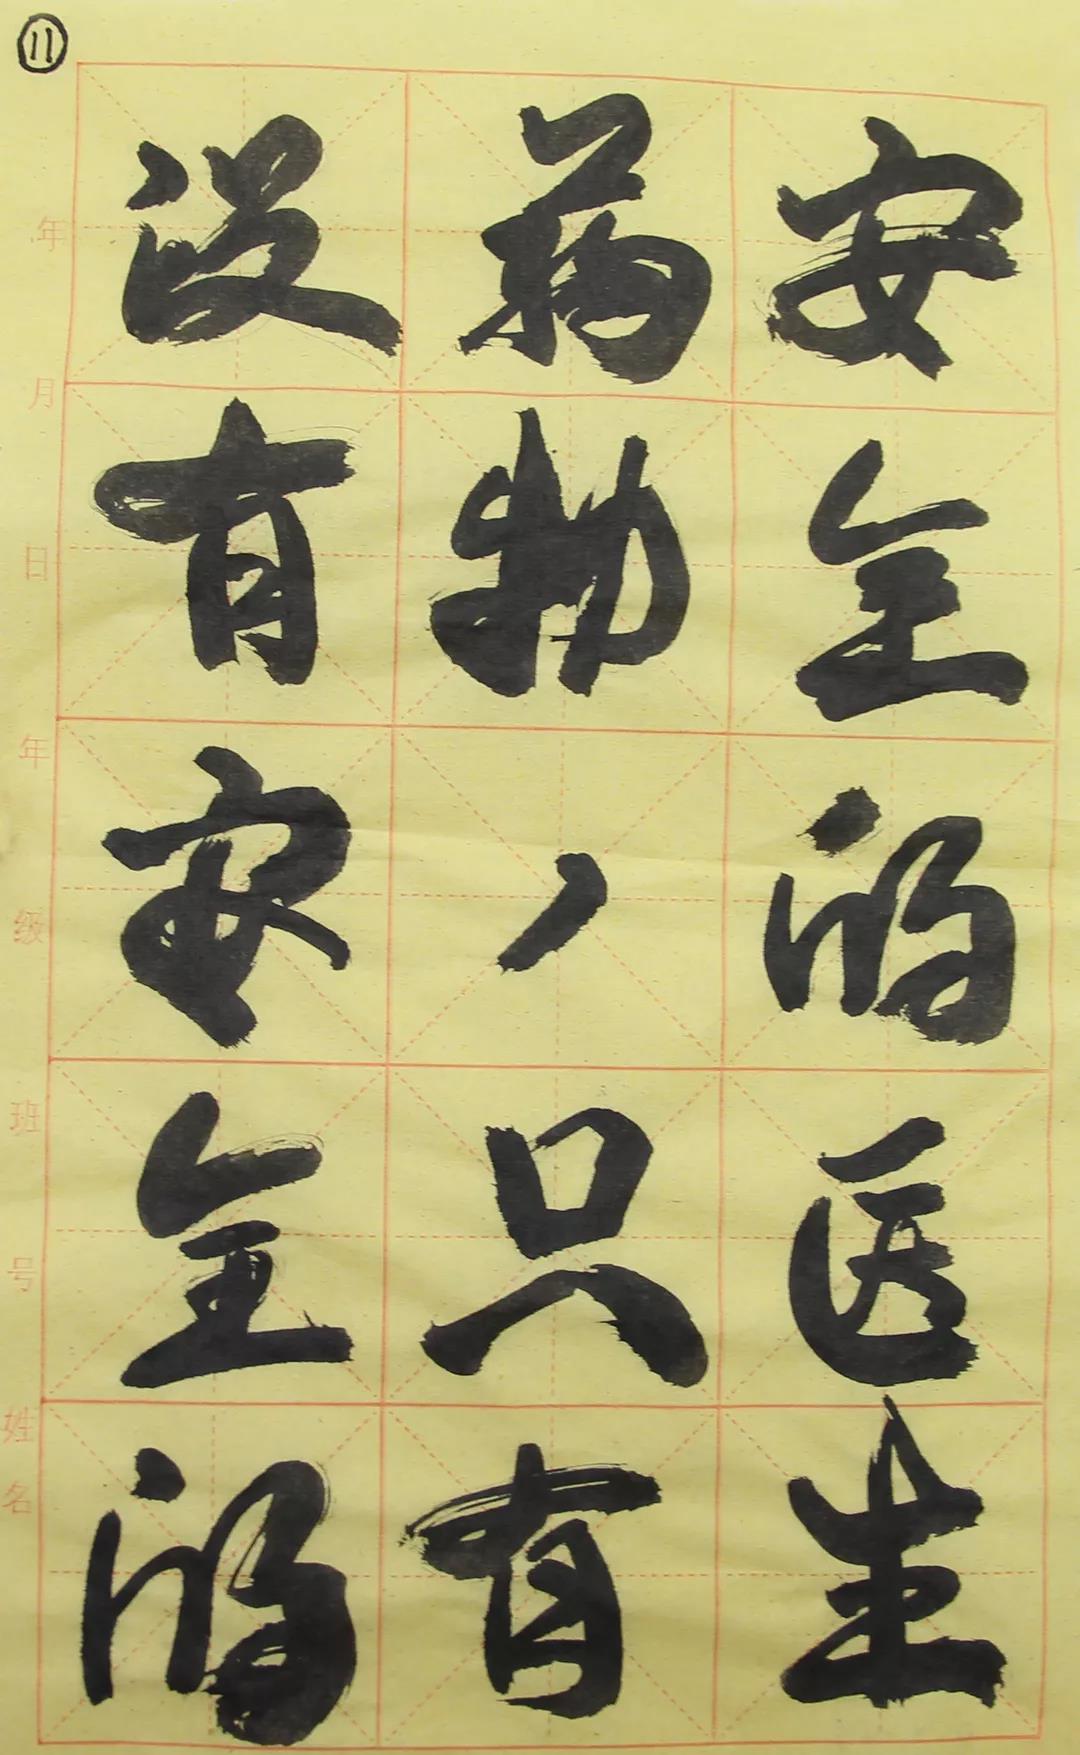 ⑪
没有安全的
药物，只有
安全的医生
年月日年级班号姓名